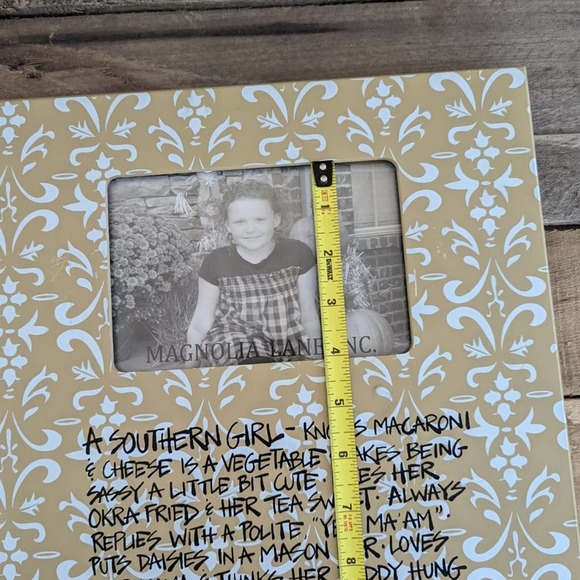 MAGNOLIA LANE INC.
1
2
DEWALT
3
4
5
6
7
8
A SOUTHERN GIRL - KN S MACARONI
& CHEESE IS A VEGETABLE AKES BEING
SASSY A LITTLE BIT CUTE. ES HER
OKRA FRIED & HER TEA SW T. ALWAYS
REPLIES WITH A POLITE "YE MA'AM".
PUTS DAISIES IN A MASON R. LOVES
& THINKS HER DDY HUNG